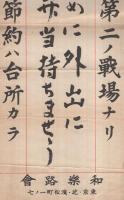 第二ノ戰場ナリ
めに外出に
弁当持ちませう
節約ハ台所カラ
和樂路會
東京・芝・濱松町一ノ七